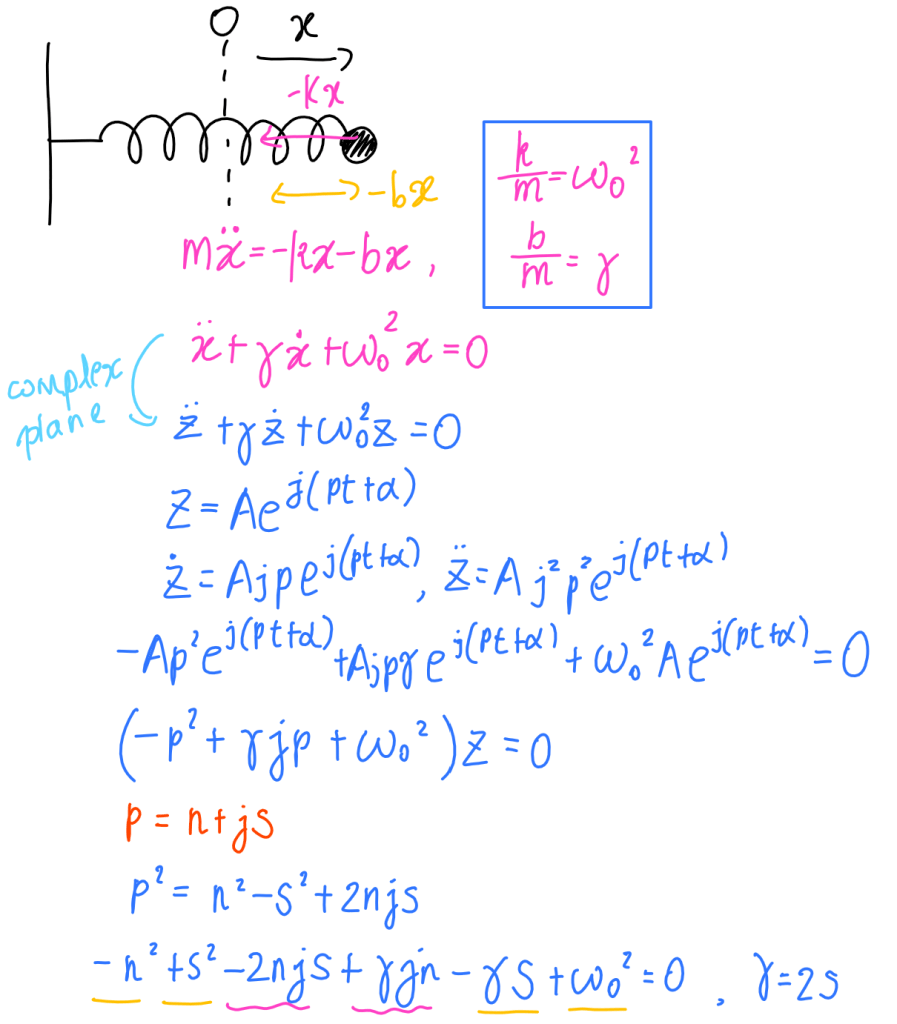 O
x
-kx
-bx
k/m = ω₀²
b/m = γ
mẍ = -kx - bx ,
ẍ + γẋ + ω₀² x = 0
complex
plane
z̈ + γż + ω₀²z = 0
z = Ae^{j(pt+α)}
ż = Ajpe^{j(pt+α)} , z̈ = A j²p²e^{j(pt+α)}
-Ap²e^{j(pt+α)} + Ajpγe^{j(pt+α)} + ω₀²Ae^{j(pt+α)} = 0
(-p² + γjp + ω₀²)z = 0
p = n + js
p² = n² - s² + 2njs
-n² + s² - 2njs + γjn - γs + ω₀² = 0 , γ = 2s